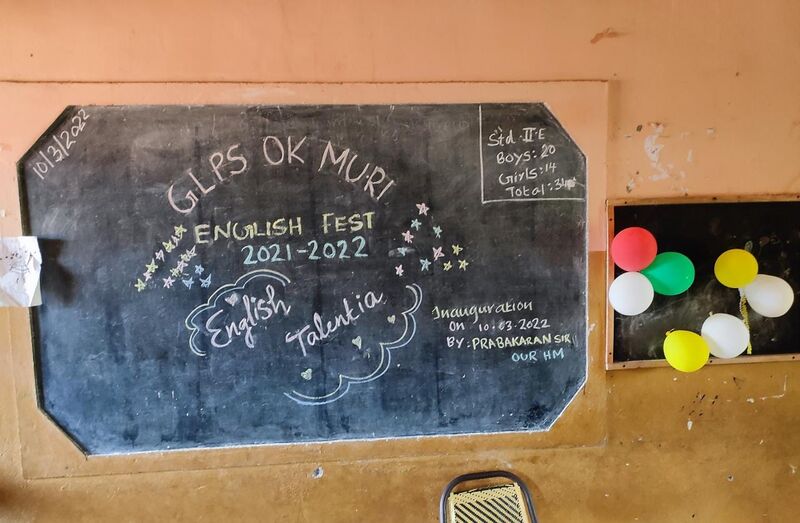 10/3/2022
GLPS OK MURI
ENGLISH FEST
2021-2022
English
Talentia
Std - II - E
Boys: 20
Girls: 14
Total: 34
Inauguration
On 10.03.2022
BY: PRABAKARAN SIR
OUR HM